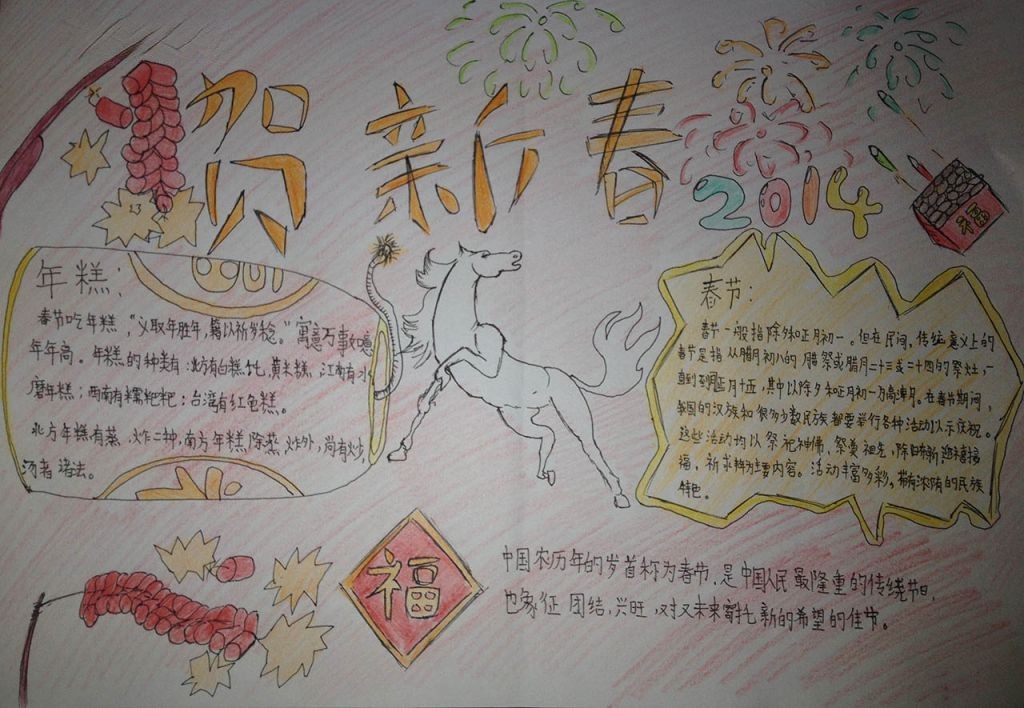 贺新春
2014
福
13
年糕：
春节吃年糕，“义取年胜年，藉以祈岁稔。”寓意万事如意
年年高。年糕的种类有：北方有白糕饦，黄米糕，江南有水
磨年糕；西南有糯粑粑；台湾有红龟糕。
北方年糕有蒸、炸二种，南方年糕除蒸、炸外，尚有炒，
汤者诸法。
春节：
春节一般指除夕和正月初一。但在民间，传统意义上的
春节是指从腊月初八的腊祭或腊月二十三或二十四的祭灶，一
直到正月十五，其中以除夕和正月初一为高潮。在春节期间，
我国的汉族和很多少数民族都要举行各种活动以示庆祝。
这些活动均以祭祀神佛、祭奠祖先、除旧布新迎禧接
福、祈求丰年为主要内容。活动丰富多彩，带有浓郁的民族
特色。
福
中国农历年的岁首称为春节，是中国人民最隆重的传统节日，
也象征团结，兴旺，对未来寄托新的希望的佳节。